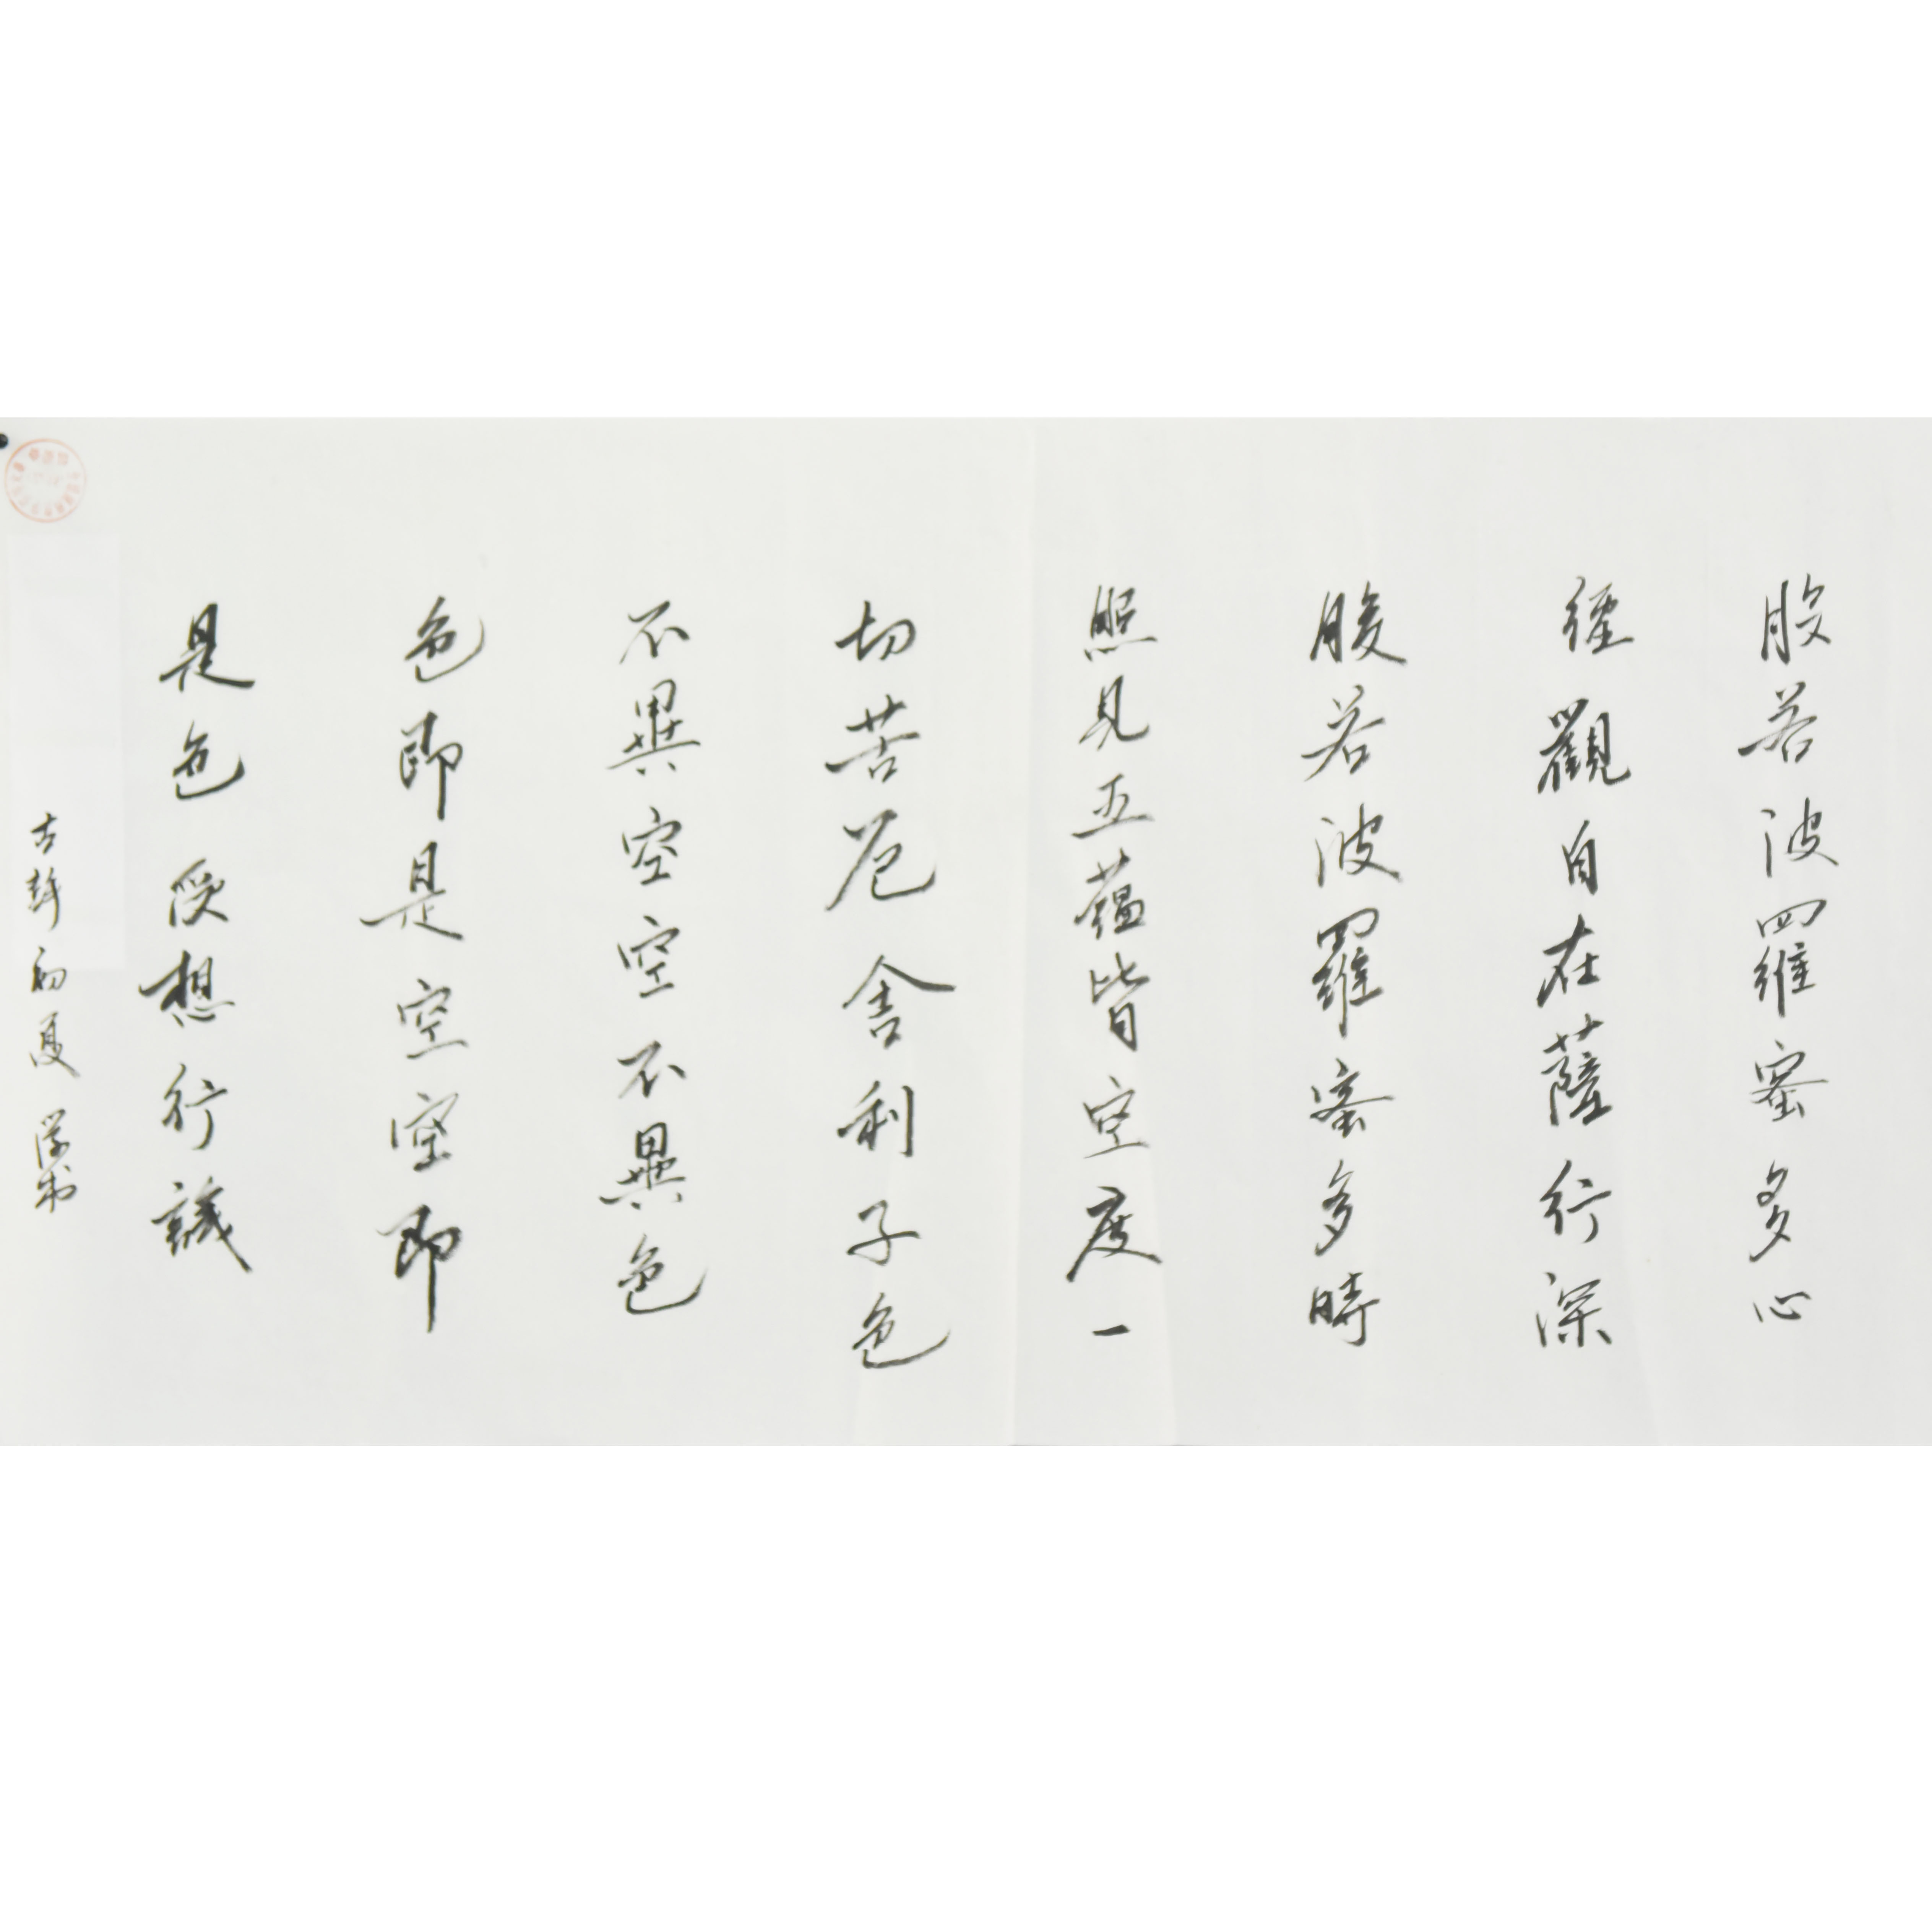 般若波羅蜜多心
經觀自在薩行深
般若波羅蜜多時
照見五蘊皆空度一
切苦厄舍利子色
不異空空不異色
色即是空空即
是色受想行識
古 初夏